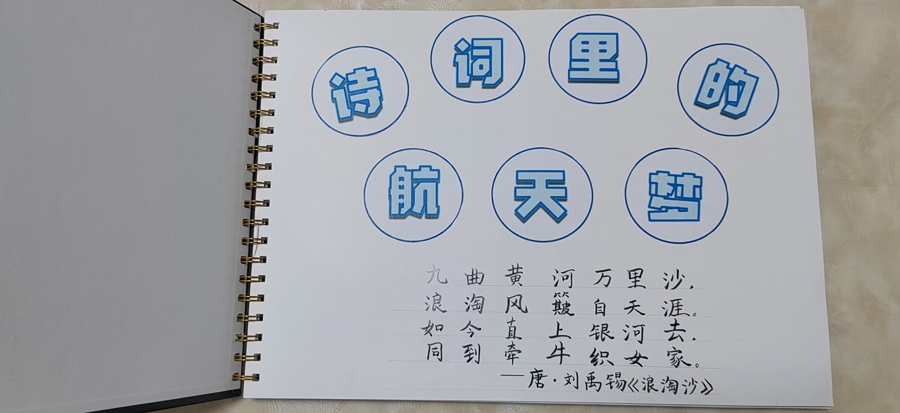 诗词里的
航天梦
九曲黄河万里沙,
浪淘风簸自天涯。
如今直上银河去,
同到牵牛织女家。
——唐·刘禹锡《浪淘沙》